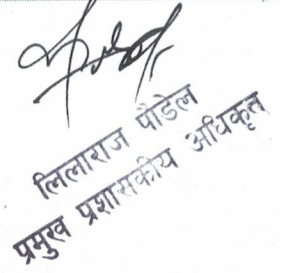 लिलाराज पौडेल
प्रमुख प्रशासकीय अधिकृत